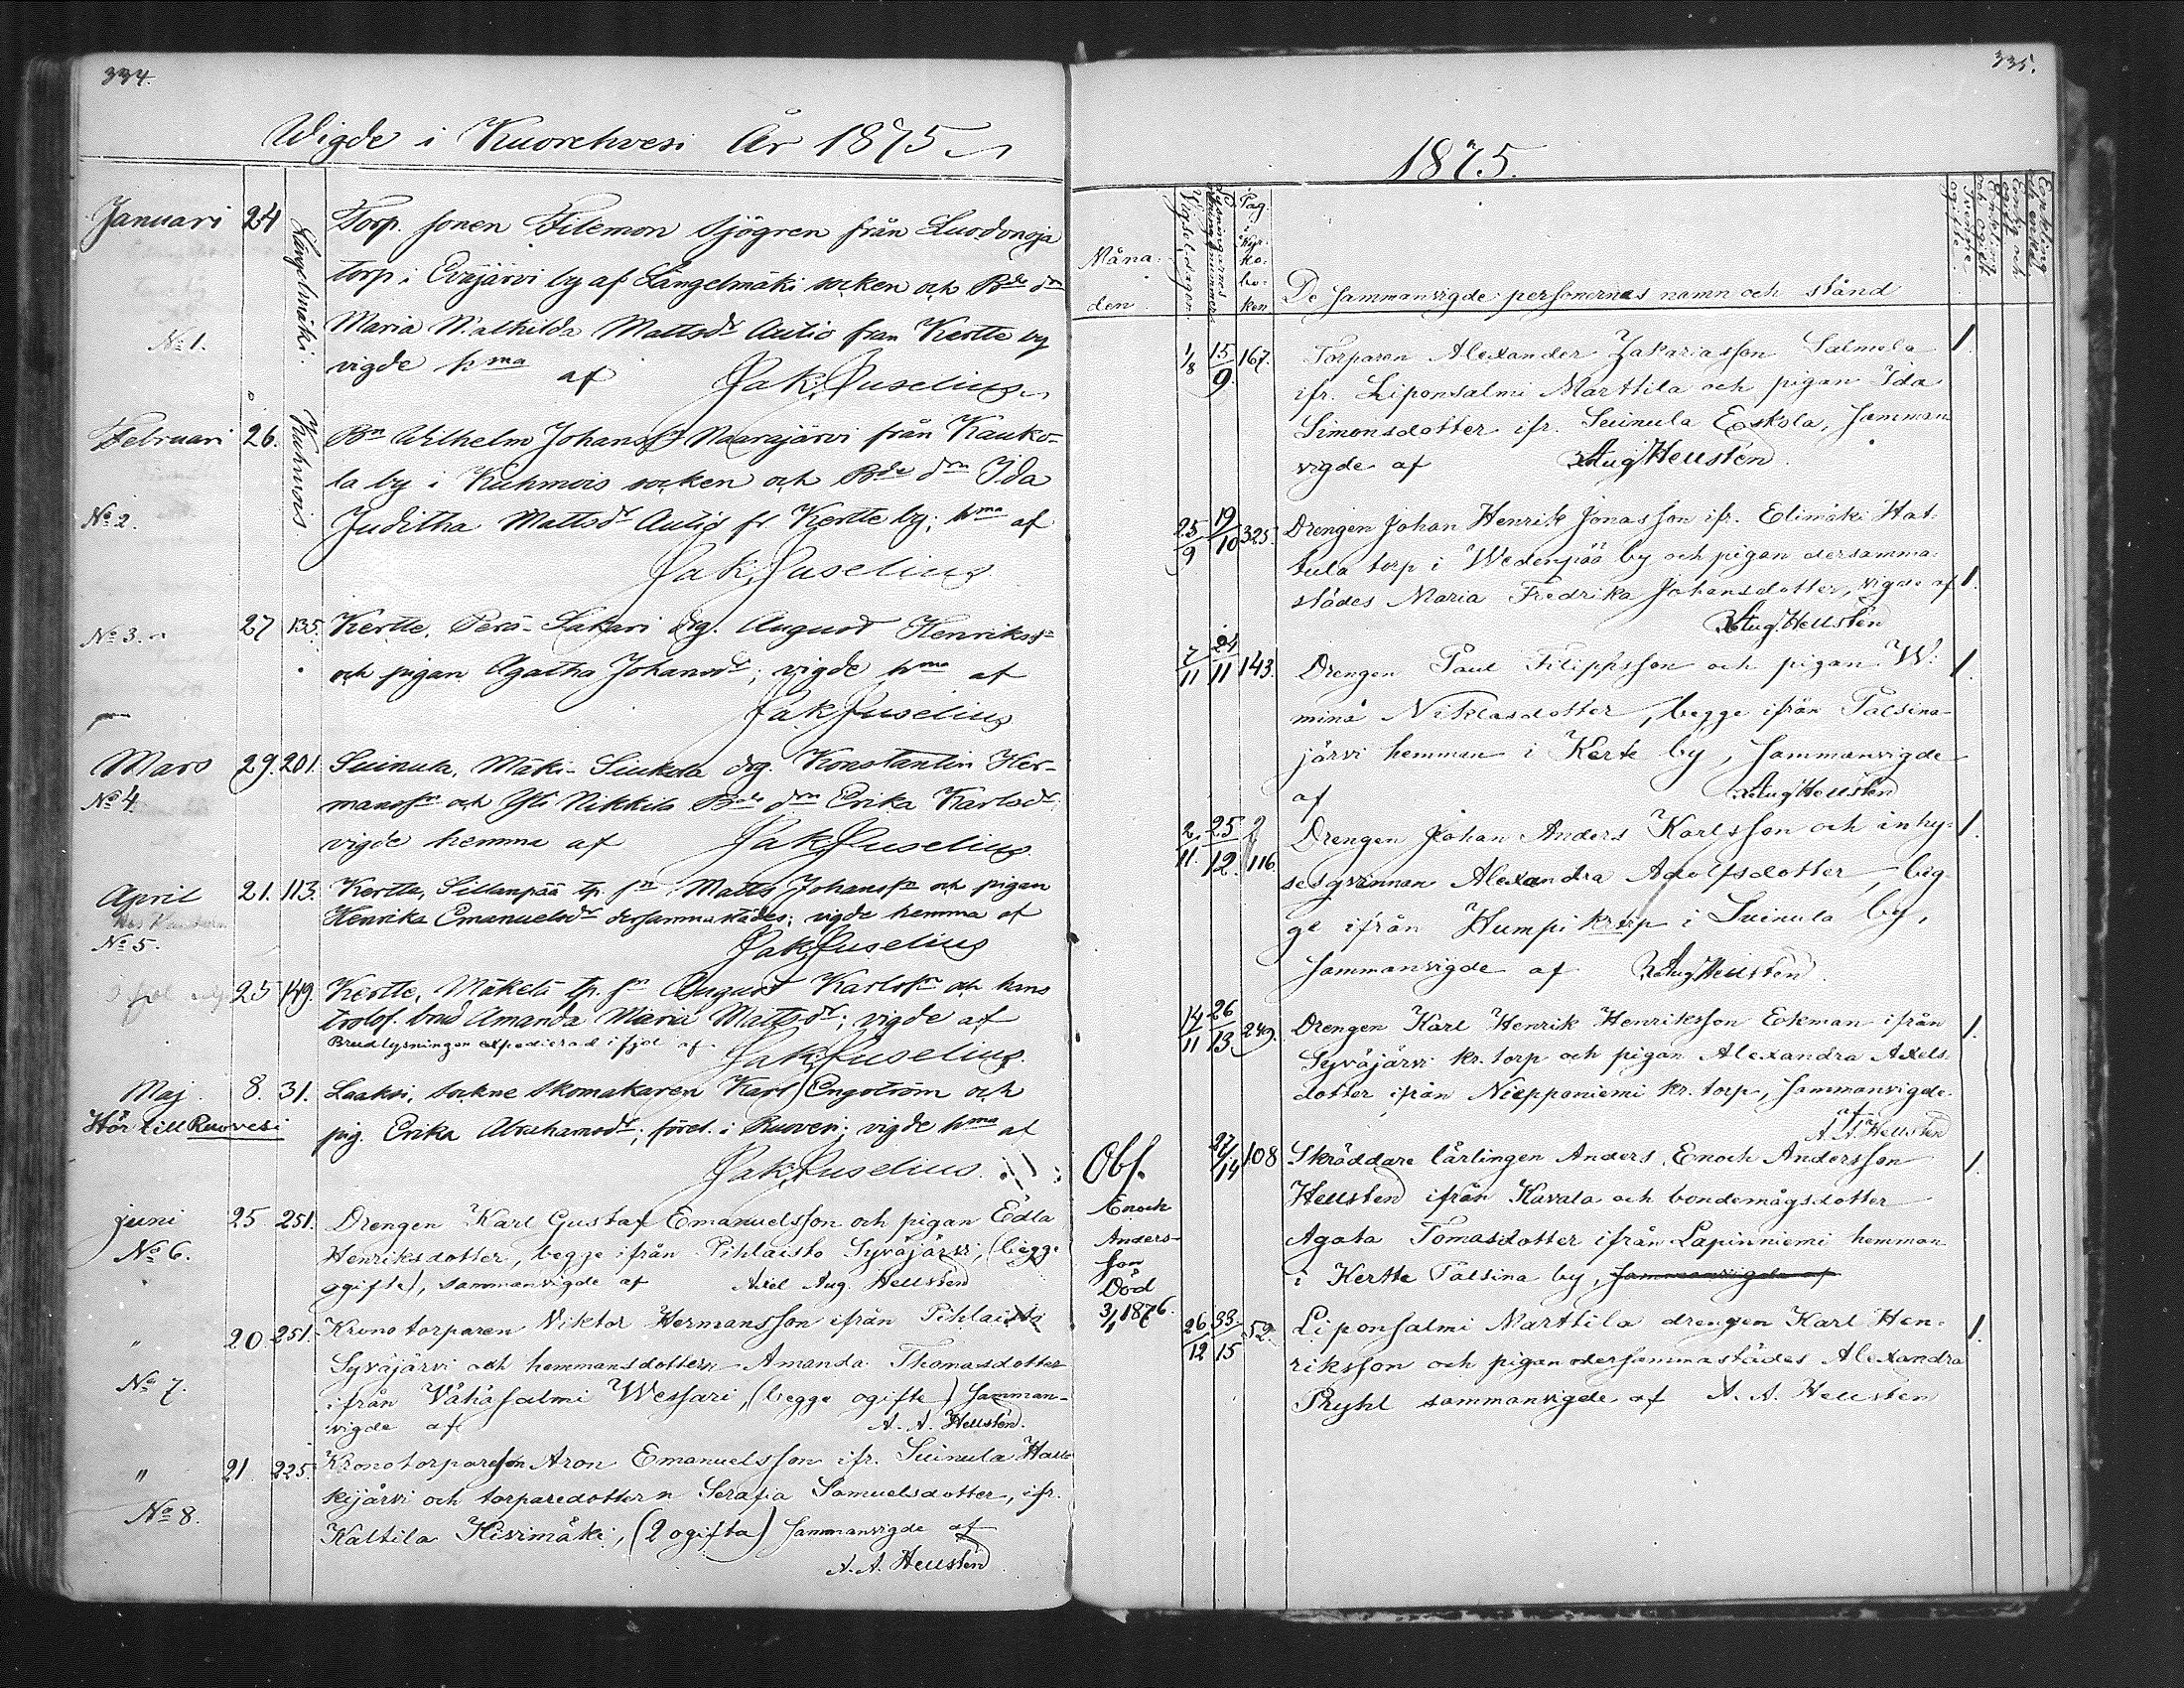 334.
Wigde i Kuorehvesi År 1875
Januari 24 Längelmäki. Torp. sonen Filemon Sjögren från Luodonoja
torp i Eväjärvi by af Längelmäki socken och Bde dn
Maria Mathilda Mattsdr Autio från Kertte by
No 1.
vigde hma af Jak. Juselius
Februari 26. Kuhmois. Bn Wilhelm Johansson Naarajärvi från Kauko-
la by i Kuhmois socken och Bde dn Ida
No 2. Juditha Mattsdr Autio fr Kertte by; hma af
Jak. Juselius
No 3. 27 135. Kertte, Perä-Sakari drg. August Henrikss
och pigan Agatha Johansdr; vigde hma af
Jak. Juselius
Mars 29. 201. Suinula, Mäki-Siukola drg. Konstantin Her-
No 4 mansson och Yli Nikkilä Bde dn Erika Karlsdr;
vigde hemma af Jak. Juselius
April 21. 113. Kertte, Sillanpää tp. sn Matts Johansson och pigan
Henrika Emanuelsdr dersammastädes; vigde hemma af
No 5. Jak. Juselius
25 149. Kertte, Mäkelä tp. sn August Karlsson och hans
trolof. brud Amanda Maria Mattsdr; vigde af
Brudlysningen expedierad i fjol af Jak. Juselius.
Maj 8. 31. Laaksi, sockne skomakaren Karl Engström och
Hör till Ruovesi pig. Erika Abrahamsdr; föret. i Ruovesi; vigde hma af
Jak. Juselius
juni 25 251. Drengen Karl Gustaf Emanuelsson och pigan Edla
No 6. Henriksdotter, begge ifrån Pihlaisto Syväjärvi, (begge
ogifte), sammanvigde af Axel Aug. Hellstén
" 20. 251. Kronotorparen Viktor Hermansson ifrån Pihlaisto
Syväjärvi och hemmansdottern Amanda Thomasdotter
No 7. ifrån Vähäsalmi Wessari, (begge ogifte) samman-
vigde af A. A. Hellstén.
" 21 225. Kronotorpareson Aron Emanuelsson ifr. Suinula
kijärvi och torparedottern Serafia Samuelsdotter, ifr.
No 8. Kaltila Hirsimäki, (2 ogifta) sammanvigde af
A. A. Hellstén
335.
1875.
Måna-
den
Vigselsdagen.
Lysningarnes
Pag. i Kyr-
ko-
bo-
ken
De sammanvigde personernas namn och stånd
1/8 15/9. 167. Torparen Alexander Zakariasson Salmela 1.
ifr. Liponsalmi Marttila och pigan Ida
Simonsdotter ifr. Suinula Eskola, samman
vigde af A. Aug Hellstén
25/9 19/10 325. Drengen Johan Henrik Jonasson ifr. Elimäki Hat-
tula torp i Wedenpää by och pigan dersamma-
städes Maria Fredrika Johansdotter, vigde af 1.
A. Aug. Hellstén
7/11 24/11 143. Drengen Paul Filippsson och pigan W: 1.
mina Niklasdotter, begge ifrån Talsina-
järvi hemman i Kerte by, sammanvigde
af A. Aug Hellstén
2./11. 25/12. 2/116. Drengen Johan Anders Karlsson och inhy- 1.
sesqvinnan Alexandra Adolfsdotter, beg-
ge ifrån Humpi krtorp i Suinula by,
sammanvigde af A. Aug Hellstén
14/11 26/13. 249. Drengen Karl Henrik Henriksson Eckman ifrån 1.
Syväjärvi kr. torp och pigan Alexandra Axels-
dotter ifrån Niepponiemi kr. torp, sammanvigde
af
A. A. Hellstén
Obs. 27/14 108 Skräddare lärlingen Anders Enoch Andersson 1.
Enoch Hellstén ifrån Kavala och bondemågsdotter
Anders- Agata Tomasdotter ifrån Lapinniemi hemman
son i Kertte Talsina by, sammanvigde af
Död
3/1 1876.
26/12 33/15 52. Liponsalmi Marttila drengen Karl Hen- 1.
riksson och pigan dersammastädes Alexandra
Pryhl sammanvigde af A. A. Hellstén